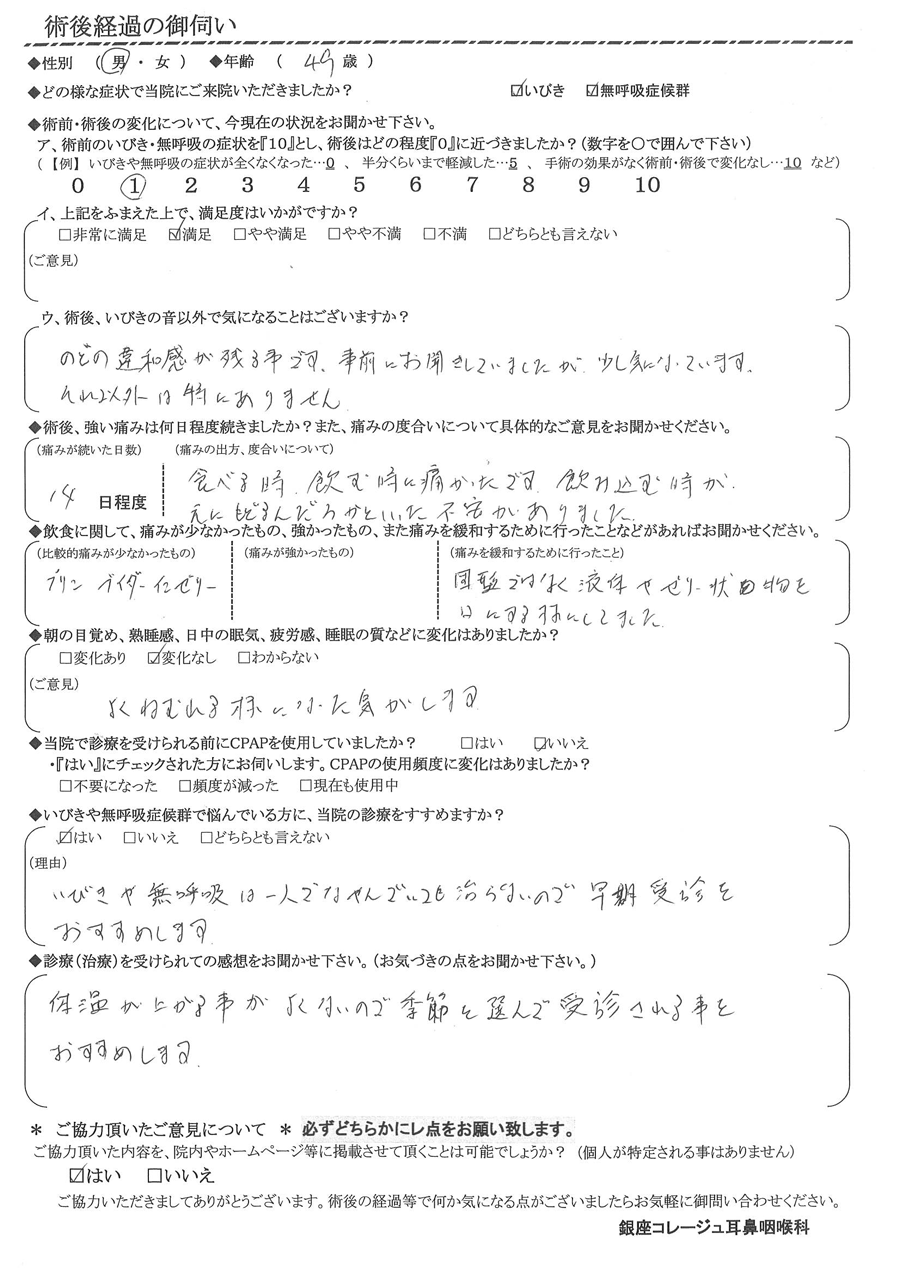 術後経過の御伺い
◆性別 （ 男 ・ 女 ） ◆年齢 （ 49 歳 ）
◆どの様な症状で当院にご来院いただきましたか？ ☑いびき ☑無呼吸症候群
◆術前・術後の変化について、今現在の状況をお聞かせ下さい。
ア、術前のいびき・無呼吸の症状を『10』とし、術後はどの程度『0』に近づきましたか？（数字を〇で囲んで下さい）
（ 【例】 いびきや無呼吸の症状が全くなくなった…0 、 半分くらいまで軽減した…5 、 手術の効果がなく術前・術後で変化なし…10 など）
0 1 2 3 4 5 6 7 8 9 10
イ、上記をふまえた上で、満足度はいかがですか？
□非常に満足 ☑満足 □やや満足 □やや不満 □不満 □どちらとも言えない
（ご意見）
ウ、術後、いびきの音以外で気になることはございますか？
のどの違和感が残る事です、事前にお聞きしていましたが、少し気になっています。
それ以外は特にありません
◆術後、強い痛みは何日程度続きましたか？また、痛みの度合いについて具体的なご意見をお聞かせください。
（痛みが続いた日数） （痛みの出方、度合いについて）
14 日程度 食べる時、飲む時に痛かったです 飲み込む時が、
元にもどるんだろうかといった不安がありました。
◆飲食に関して、痛みが少なかったもの、強かったもの、また痛みを緩和するために行ったことなどがあればお聞かせください。
（比較的痛みが少なかったもの） （痛みが強かったもの） （痛みを緩和するために行ったこと）
プリン ブイダーインゼリー 固型ではなく液体やゼリー状の物を
口にする様にしてました
◆朝の目覚め、熟睡感、日中の眠気、疲労感、睡眠の質などに変化はありましたか？
□変化あり ☑変化なし □わからない
（ご意見）
よくねむれる様になった気がします
◆当院で診療を受けられる前にCPAPを使用していましたか？ □はい ☑いいえ
・『はい』にチェックされた方にお伺いします。CPAPの使用頻度に変化はありましたか？
□不要になった □頻度が減った □現在も使用中
◆いびきや無呼吸症候群で悩んでいる方に、当院の診療をすすめますか？
☑はい □いいえ □どちらとも言えない
（理由）
いびきや無呼吸は一人でなやんでいても治らないので早期受診を
おすすめします
◆診療（治療）を受けられての感想をお聞かせ下さい。（お気づきの点をお聞かせ下さい。）
体温が上がる事がよくないので季節を選んで受診される事を
おすすめします。
＊ ご協力頂いたご意見について ＊ 必ずどちらかにレ点をお願い致します。
ご協力頂いた内容を、院内やホームページ等に掲載させて頂くことは可能でしょうか？ （個人が特定される事はありません）
☑はい □いいえ
ご協力いただきましてありがとうございます。術後の経過等で何か気になる点がございましたらお気軽に御問い合わせください。
銀座コレージュ耳鼻咽喉科